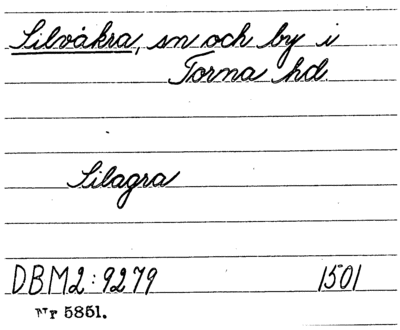 Silvåkra, sn och by i
Torna hd.
Silagra
DBM2:9279 1501
Nr 5851.